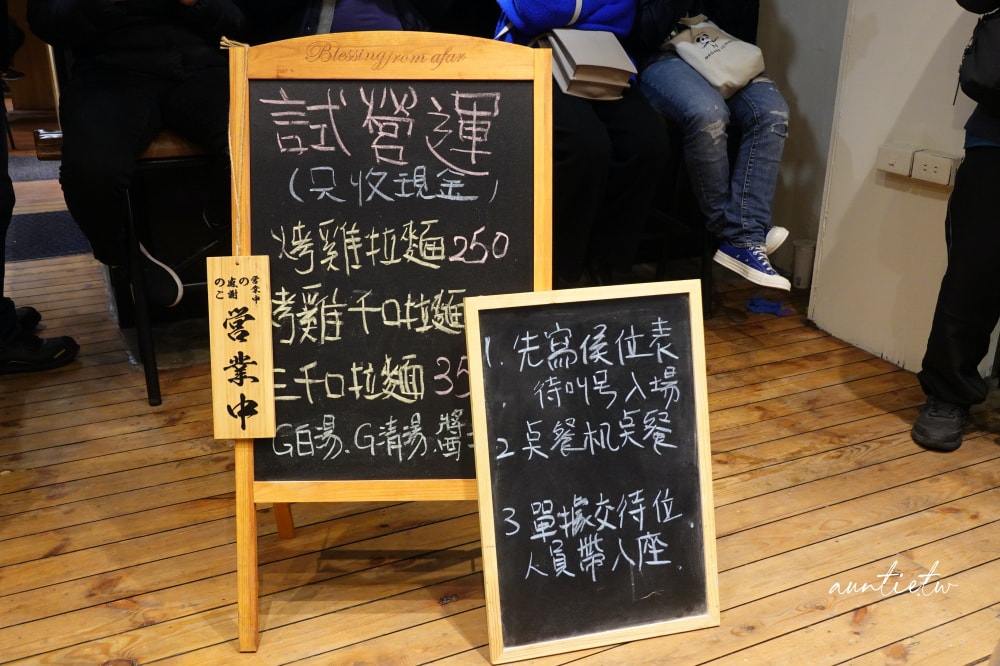 Blessing from afar
試營運
(只收現金)
烤雞拉麵250
烤雞千口拉麵
三千口拉麵 35
G白湯.G清湯.醬
營業中
の
のこ
営業中
1. 先寫侯位表
待叫号入場
2 桌餐机桌餐
3 單據交待位
人員帶入座.
auntie.tw